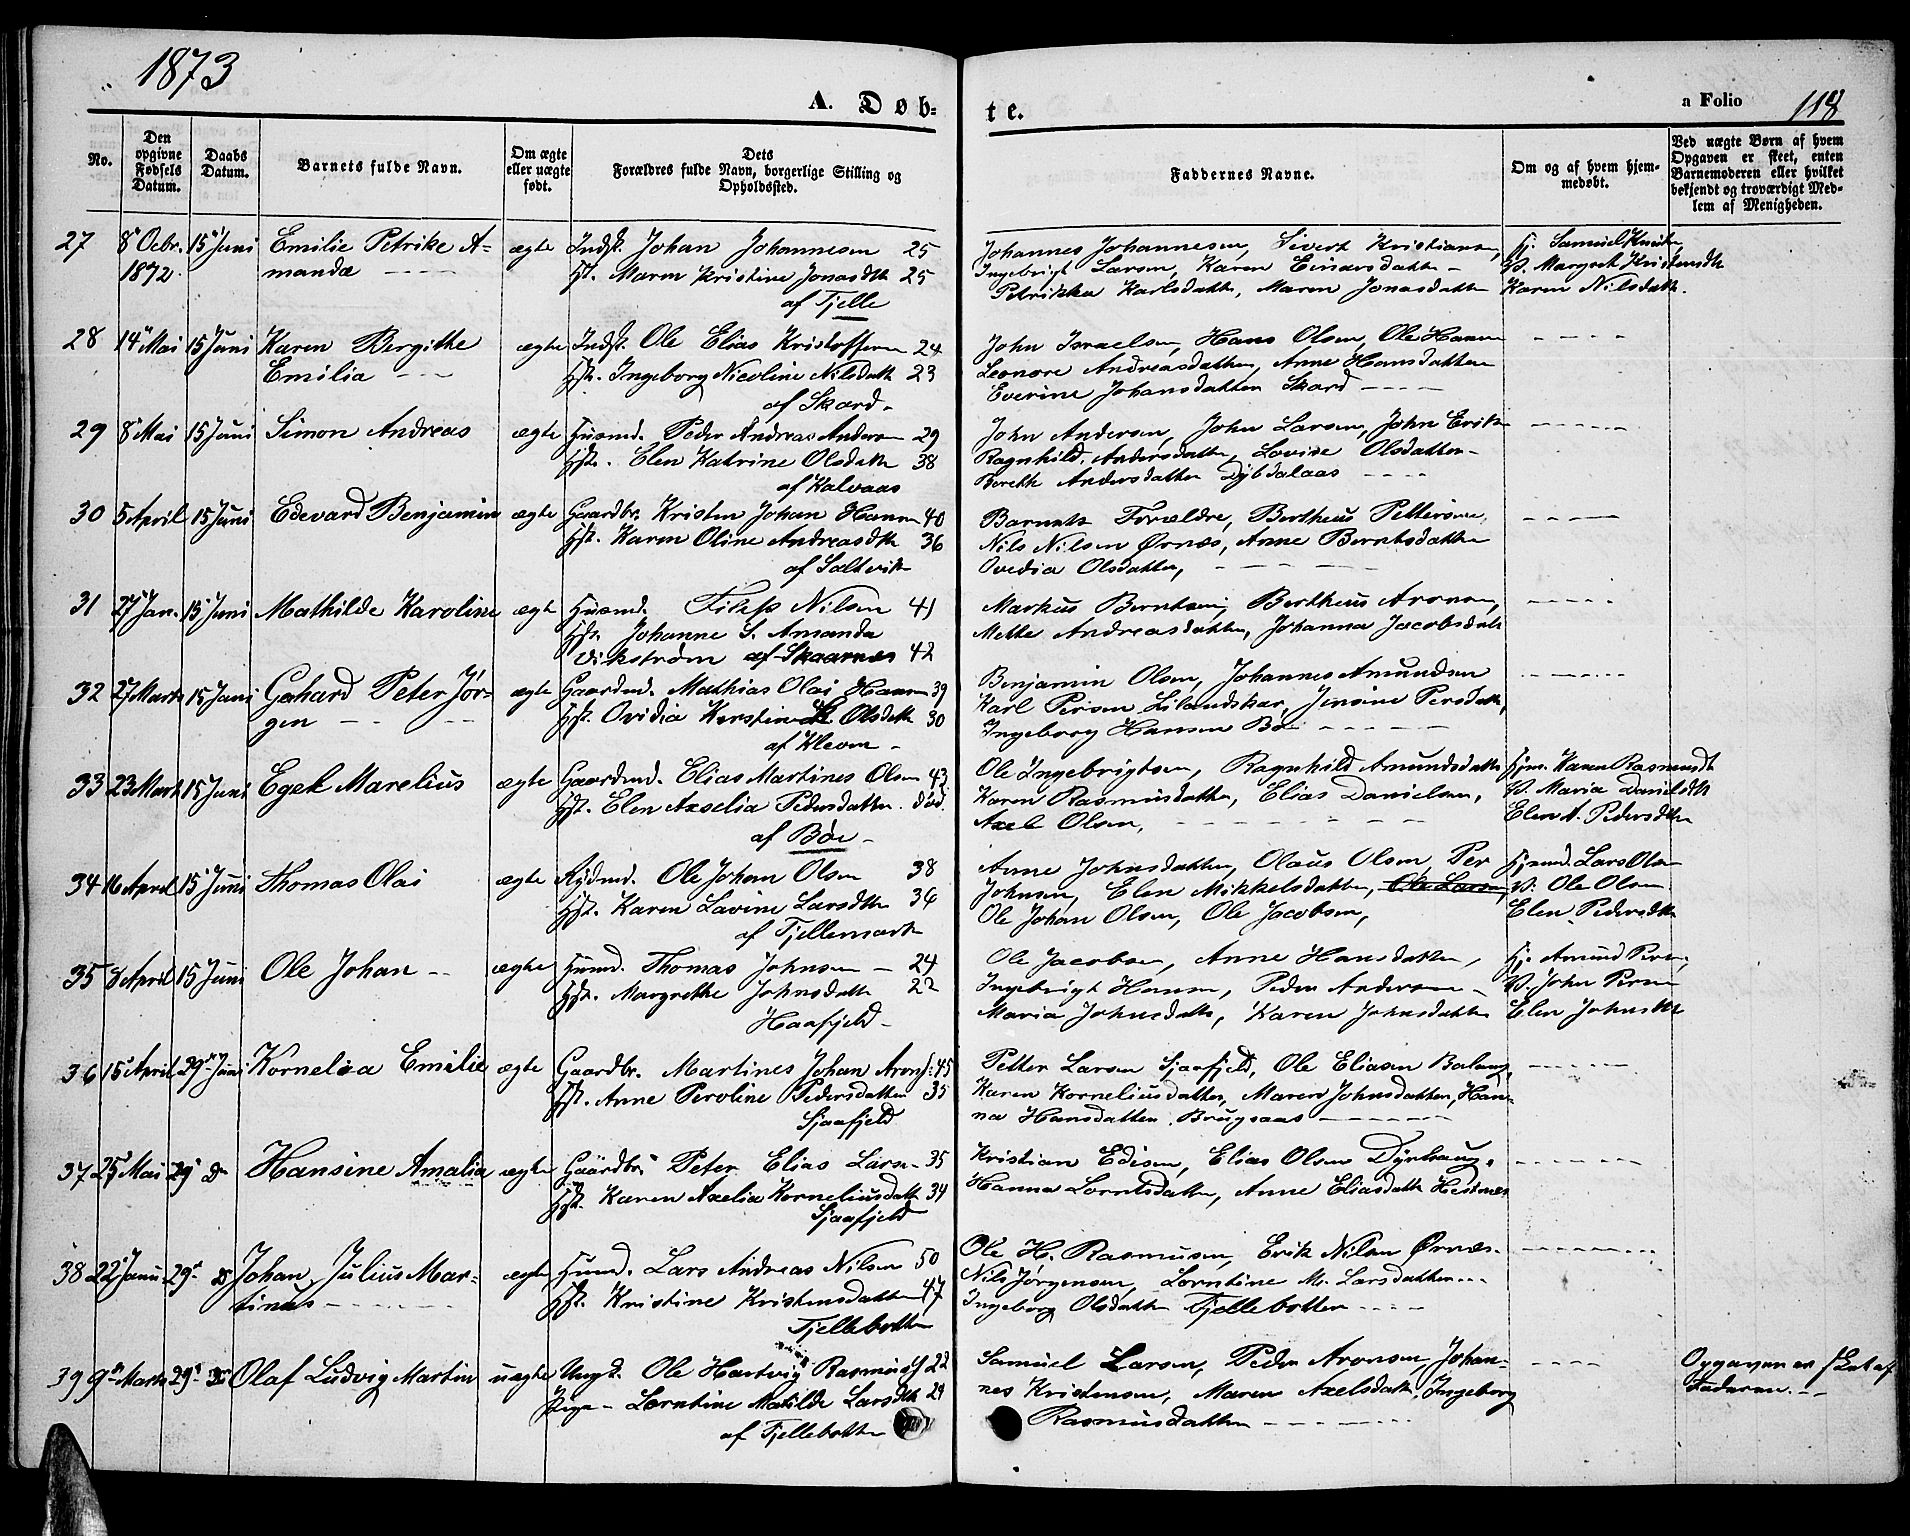 1873
A. Døb-
te.
a Folio 118
No.
Den opgivne Fødsels Datum.
Daabs Datum.
Barnets fulde Navn.
Om ægte eller uægte født.
Dets Forældres fulde Navn, borgerlige Stilling og Opholdssted.
Faddernes Navne.
Om og af hvem hjemmedøbt.
Ved uægte Børn af hvem Opgaven er skeet, enten Barnemoderen eller hvilket bekjendt og troværdigt Medlem af Menigheden.
27 8 Octbr. 15 Juni Emilie Petrike A- ægte Indst. Johan Johannesen 25 Johannes Johannesen, Sivert Kristiansen, Hj. Samuel Knuts
1872. manda Hst. Maren Kristine Jonasdtt 25 Ingebrigt Larsen, Karen Einarsdatter V. Margret Kristensdtt
af Tjelle Petrikka Karlsdatter, Maren Jonasdatter Karen Nilsdatt.
28 14 Mai 15 Juni Karen Bergithe ægte Indst. Ole Elias Kristoffersen 24 John Israelsen, Hans Olsen, Ole Hansen
Emilia Hst. Ingeborg Nicoline Nilsdatt 23 Leonore Andreasdatter, Anne Hansdatter
af Skard Everine Johansdatter Skard
29 8 Mai 15 Juni Simon Andreas ægte Husmd. Peder Andreas Andersen 29 John Andersen, John Larsen, John Eriks
Hst. Elen Katrine Olsdatt 38 Ragnhild Andersdatter, Lovise Olsdatter
af Kalvaas Berethe Andersdatter Dybdalaas
30 5 April 15 Juni Edevard Benjamin ægte Gaardbr. Kristen Johan Hansen 40 Barnets Forældre, Bertheus Pettersen,
Hst. Karen Oline Andreasdtt 36 Nils Nilsen Ørnæs, Anne Berntsdatter
af Saltvik Ovedia Olsdatter,
31 27 Jan. 15 Juni Mathilde Karoline ægte Husmd. Filip Nilsen 41 Markus Berntsen, Bertheus Aronsen,
Hst. Johanne S. Amanda Mette Andreasdatter, Johanna Jacobsdatt
Vikstrøm af Skaarnes 42
32 27 Marts 15 Juni Gerhard Peter Jør- ægte Gaardmd. Mathias Olai Hansen 39 Benjamin Olsen, Johannes Amundsen
gen Hst. Ovidia Kerstine Olsdatt 30 Karl Persen Lilandskar, Jensine Persdatt,
af Kleven Ingeborg Hansen Bø
33 23 Marts 15 Juni Egel Marelius ægte Gaardmd. Elias Martines Olsen 43 Ole Ingebrigtsen, Ragnhild Amundsdatter Hjm. Karen Rasmusdt
Hst. Elen Axselia Pedersdatter. død. Karen Rasmusdatter, Elias Danielsen, V. Maria Danielsdtt
af Bøe Axel Olsen, Elen A. Pedersdtter
34 16 April 15 Juni Thomas Olai ægte Rydmd. Ole Johan Olsen 38 Anne Johnsdatter, Olaus Olsen, Per Hjmd. Lars Olsen
Hst. Karen Lavine Larsdtt 36 Johnsen, Elen Mikkelsdatter, Ole Larsen, V. Ole Olsen
af Tjellemark Ole Johan Olsen, Ole Jacobsen, Elen Pedersdtt
35 8 April 15 Juni Ole Johan ægte Husmd. Thomas Johnsen 24 Ole Jacobsen, Anne Hansdatter, Hj. Amund Persen,
Hst. Margrethe Johnsdatt 22 Ingebrigt Hansen, Peder Andersen V. John Persen
Haafjeld Maria Johnsdatt, Karen Johnsdatter Elen Johnsdtt
36 15 April 29 Juni Kornelia Emilie ægte Gaardbr. Martines Johan Arons: 45 Petter Larsen Sjaafjeld, Ole Eliasen Balang,
Hst. Anne Peroline Pedersdatter 35 Karen Korneliusdatter, Maren Johnsdatter, Han-
Sjaafjeld na Hansdatter Brugsaas
37 25 Mai 29 do Hansine Amalia ægte Gaardbr. Peter Elias Larsen 35 Kristian Edisen, Elias Olsen Dyrhaug,
Hst. Karen Axelia Korneliusdatt 34 Hanna Lorntsdatter, Anne Eliasdatt Hestnæs
Sjaafjeld
38 22 Janu. 29 do Johan Julius Mar- ægte Husmd. Lars Andreas Nilsen 50 Ole H. Rasmusen, Erik Nilsen Ørnæs
tinus Hst. Kristine Kristensdatter 47 Nils Jørgensen, Lorntine M. Larsdatter
Tjellebotten Ingeborg Olsdatter Tjellebotten
39 9 Marts 29 do Olaf Ludvig Martin uægte Ungk. Ole Hartvig Rasmuss 22 Samuel Larsen, Peder Aronsen, Johan- Opgaven er skeet af
Pige Lorntine Matilde Larsdtt 29 nes Kristensen, Maren Axelsdatt, Ingeborg Faderen.
af Tjellebotten Rasmusdatter